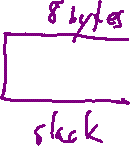 8 bytes
slack